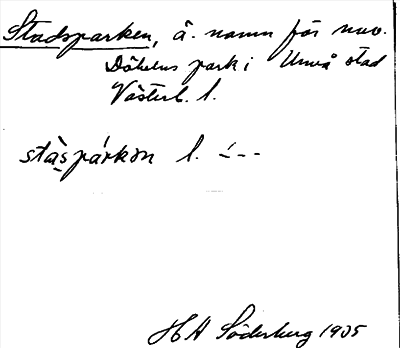 Stadsparken, ä. namn för nuv.
Döbelns park i Umeå stad
Västerb. l.
stàspárkən l. ´--
H A Söderberg 1935